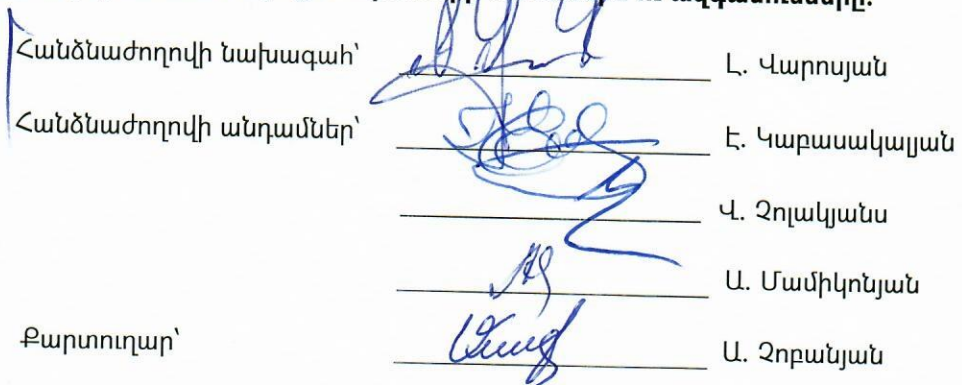 Հանձնաժողովի նախագահ՝ Լ. Վարոսյան
Հանձնաժողովի անդամներ՝ Է. Կաբասակալյան
Վ. Չոլակյանս
Ա. Մամիկոնյան
Քարտուղար՝ Ա. Չոբանյան